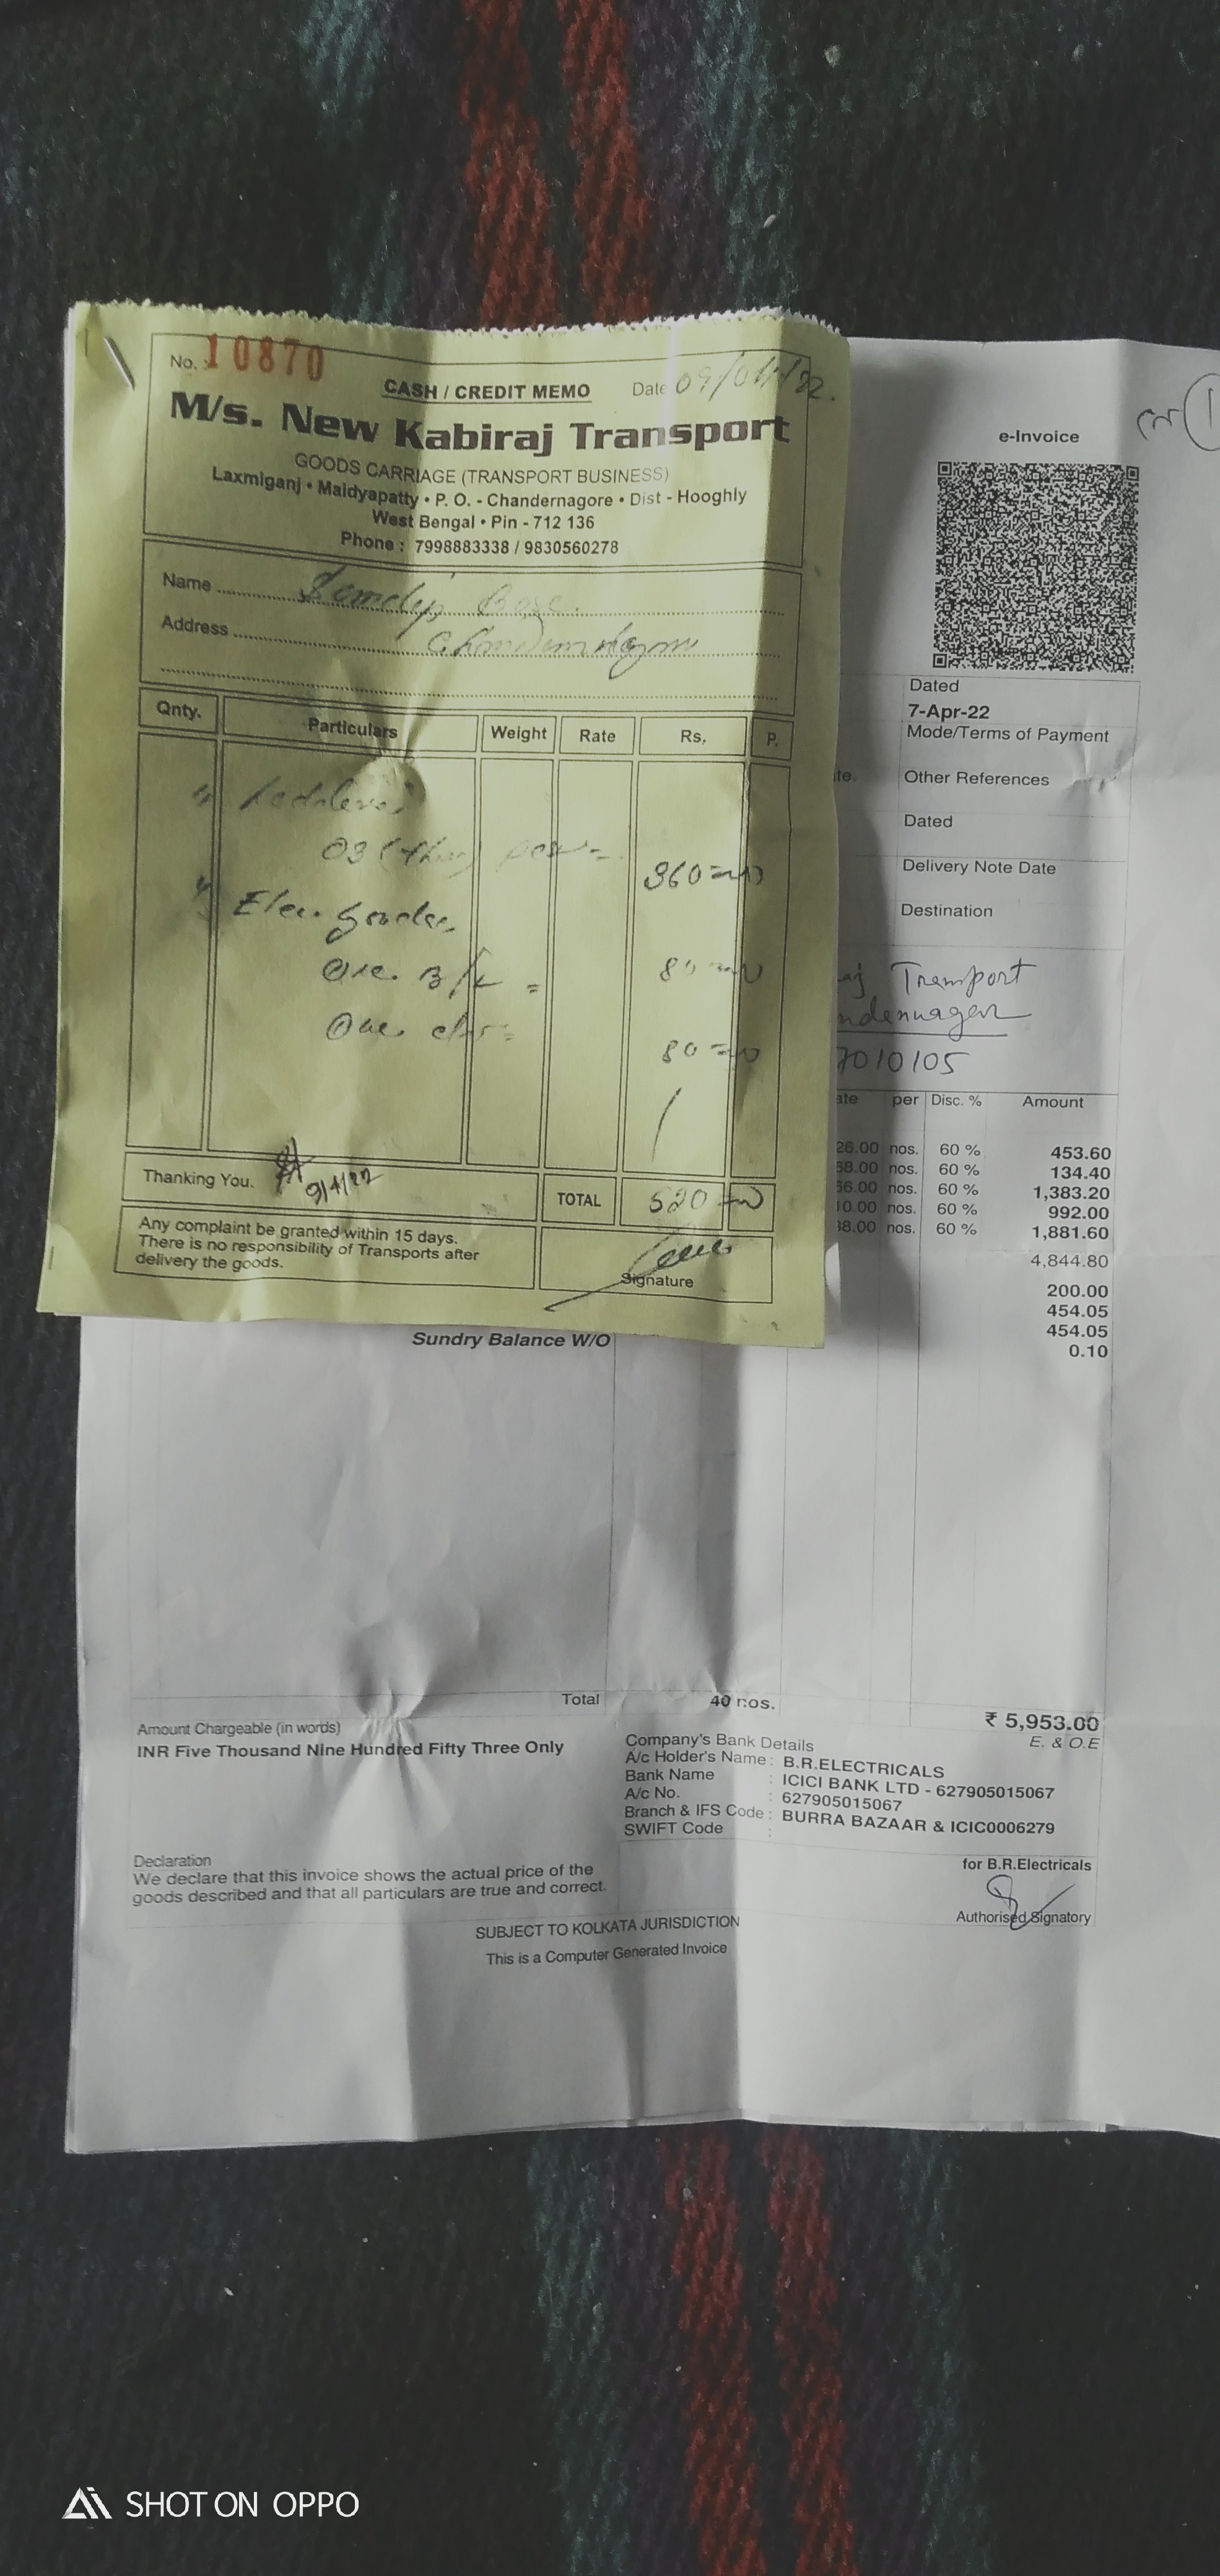 No. 10870
CASH / CREDIT MEMO Date 09/04/22.
M/s. New Kabiraj Transport
GOODS CARRIAGE (TRANSPORT BUSINESS)
Laxmiganj • Maidyapatty • P. O. - Chandernagore • Dist - Hooghly
West Bengal • Pin - 712 136
Phone : 7998883338 / 9830560278
Name
Address
Qnty. Particulars Weight Rate Rs. P.
03
360
Elec. goods
One B/L = 80
One 80
Thanking You. 9/4/22
TOTAL 520
Any complaint be granted within 15 days.
There is no responsibility of Transports after
delivery the goods.
Signature
e-Invoice
Dated
7-Apr-22
Mode/Terms of Payment
te. Other References
Dated
Delivery Note Date
Destination
aj Transport
ndennagar
7010105
ate per Disc. % Amount
26.00 nos. 60 % 453.60
68.00 nos. 60 % 134.40
66.00 nos. 60 % 1,383.20
10.00 nos. 60 % 992.00
38.00 nos. 60 % 1,881.60
4,844.80
200.00
454.05
454.05
Sundry Balance W/O 0.10
Total 40 nos. ₹ 5,953.00
Amount Chargeable (in words) E. & O.E
INR Five Thousand Nine Hundred Fifty Three Only
Company's Bank Details
A/c Holder's Name : B.R.ELECTRICALS
Bank Name : ICICI BANK LTD - 627905015067
A/c No. : 627905015067
Branch & IFS Code : BURRA BAZAAR & ICIC0006279
SWIFT Code :
Declaration
We declare that this invoice shows the actual price of the
goods described and that all particulars are true and correct.
for B.R.Electricals
Authorised Signatory
SUBJECT TO KOLKATA JURISDICTION
This is a Computer Generated Invoice
SHOT ON OPPO